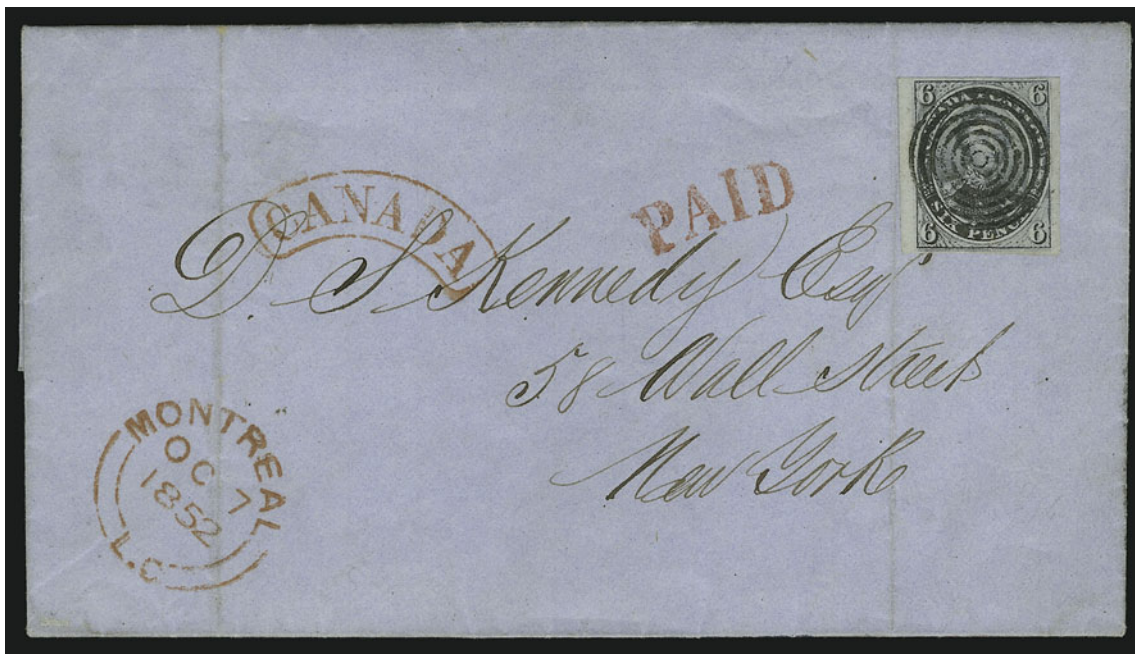 6 6
CANADA
SIX PENCE
6 6
CANADA
PAID
D. S Kennedy Esqr
58 Wall Street
New York
MONTREAL
OC 7
1852
L.C